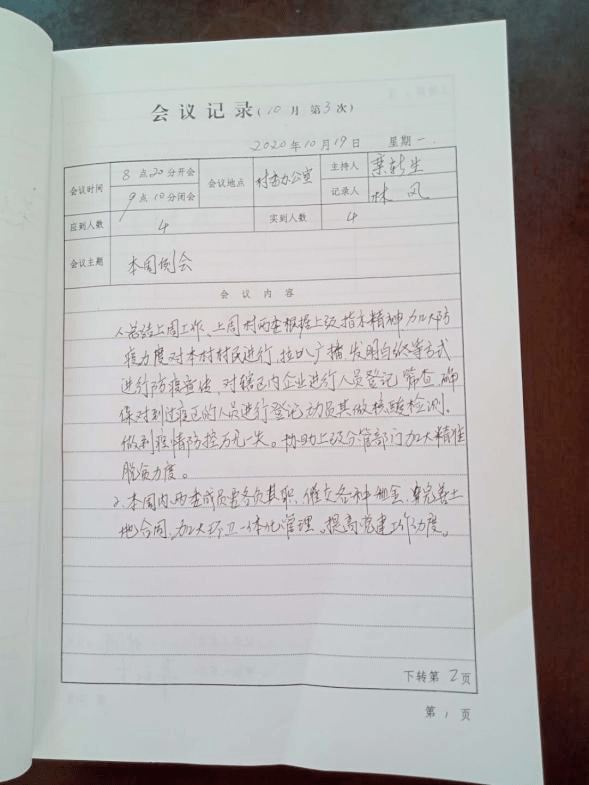 会议记录(10月 第3次)
2020年10月19日 星期一
会议时间 8点20分开会 9点10分闭会 会议地点 村委办公室 主持人 栾新生 记录人 林凤
应到人数 4 实到人数 4
会议主题 本周例会
会议内容
1、总结上周工作、上周村两委根据上级指示精神加大防
疫力度对本村村民进行,拉叭广播、发明白纸等方式
进行防疫宣传,对辖区内企业进行人员登记、筛查,确
保对到过疫区的人员进行登记动员其做核酸检测,
做到疫情防控万无一失。协助上级分管部门加大精准
脱贫力度。
2、本周内,两委成员要各负其职,催交各种租金,完善土
地合同,加大环卫一体化管理,提高党建工作力度。
下转第2页
第1页